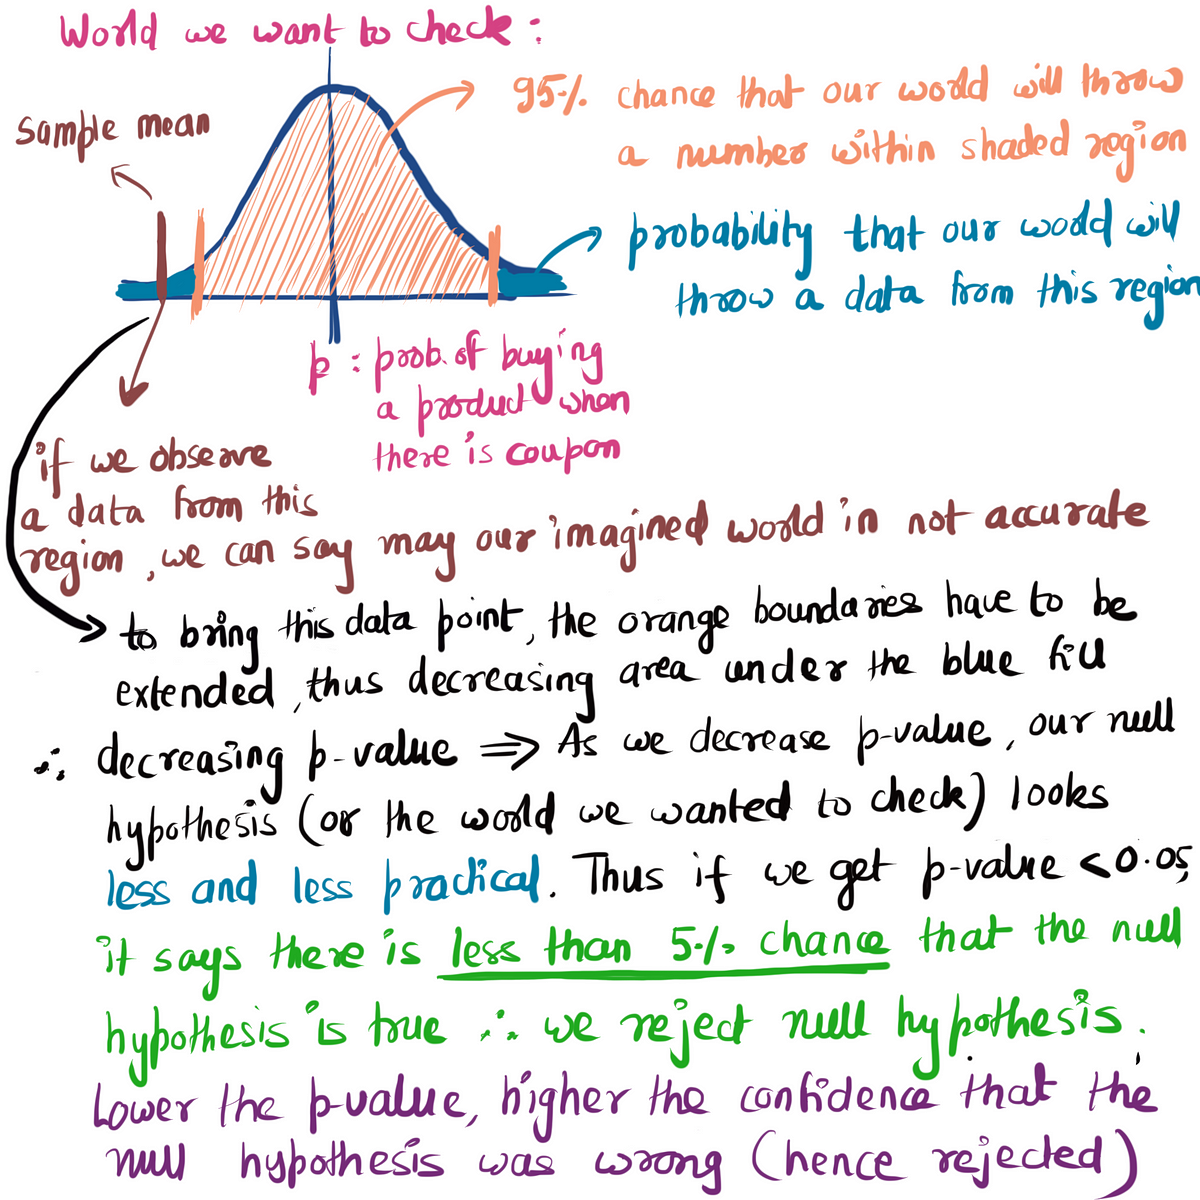 World we want to check :
sample mean
95% chance that our world will throw
a number within shaded region
probability that our world will
throw a data from this region
p : prob. of buying
a product when
there is coupon
if we observe
a data from this
region, we can say may our imagined world in not accurate
to bring this data point, the orange boundaries have to be
extended, thus decreasing area under the blue fill
∴ decreasing p-value ⇒ As we decrease p-value, our null
hypothesis (or the world we wanted to check) looks
less and less practical. Thus if we get p-value <0.05,
it says there is less than 5% chance that the null
hypothesis is true ∴ we reject null hypothesis.
Lower the p-value, higher the confidence that the
null hypothesis was wrong (hence rejected)